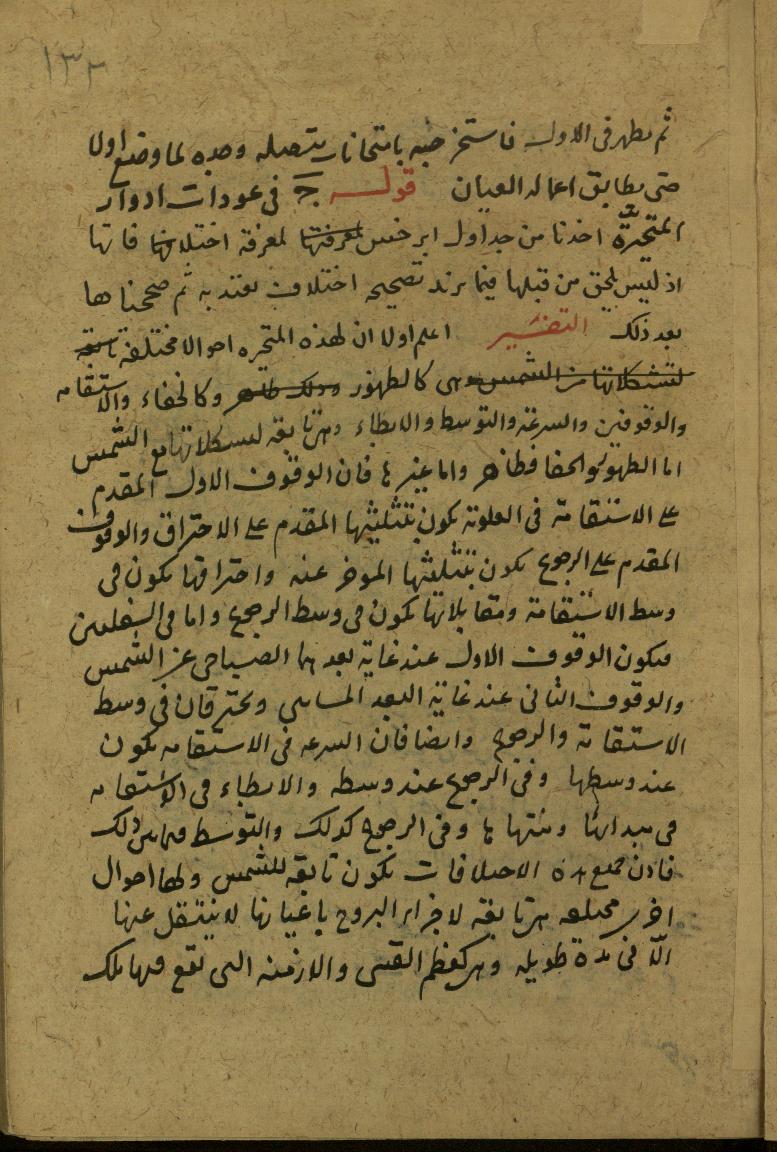 ١٣٢
ثم يظهر في الاول فاستخرجنه بامتحانات يتصله وصده لما وضع اولا
حتى يطابق اعماله العيان قوله ج في عودات ادوار
المتحيرة اخذنا من جداول ابرخس لمعرفتها لمعرفة اختلافها فانها
اذ ليس يلحق من قبلها فيما نريد تصحيحه اختلاف يعتد به ثم صححناها
بعد ذلك التفسير اعلم اولا ان لهذه المتحيره احوالا مختلفة تابعة
لتشكلاتها من الشمس وهي كالظهور وذلك ظاهر وكالخفاء والاستقامه
والوقوفين والسرعة والتوسط والابطاء وهي تابعه لتشكلاتها مع الشمس
اما الظهور والخفا فظاهر واما غيرها فان الوقوف الاول المقدم
على الاستقامة في العلوية يكون بتثليثها المقدم على الاحتراق والوقوف
المقدم على الرجوع يكون بتثليثها الموخر عنه واحتراقها يكون في
وسط الاستقامة ومقابلاتها يكون في وسط الرجوع واما في السفليين
فيكون الوقوف الاول عند غاية بعدهما الصباحي عن الشمس
والوقوف الثاني عند غاية البعد المسايي ويحترقان في وسط
الاستقامة والرجوع وايضا فان السرعه في الاستقامه يكون
عند وسطها وفي الرجوع عند وسطه والابطاء في الاستقامه
في مبدائها ومنتهاها وفي الرجوع كذلك والتوسط فيما بين ذلك
فاذن جميع هذه الاختلافات يكون تابعة للشمس ولها احوال
اخرى مختلفه هي تابعة لاجزاء البروج باعيانها لا ينتقل عنها
الا في مدة طويله وهي كعظم القسي والازمنه التي تقع فيها تلك